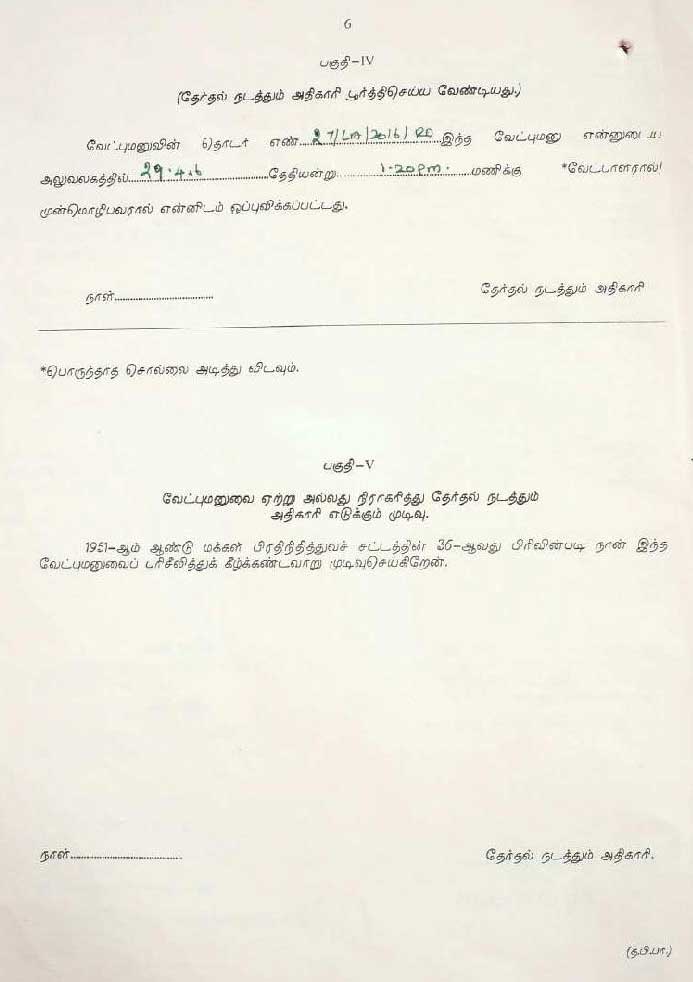 6
பகுதி-IV
(தேர்தல் நடத்தும் அதிகாரி பூர்த்திசெய்ய வேண்டியது.)
வேட்புமனுவின் தொடர் எண்....27/LA/2016/RO....இந்த வேட்புமனு என்னுடைய
அலுவலகத்தில்...29.4.6...தேதியன்று...1.20pm....மணிக்கு *வேட்பாளரால்/
முன்மொழிபவரால் என்னிடம் ஒப்புவிக்கப்பட்டது.
நாள்.................... தேர்தல் நடத்தும் அதிகாரி
*பொருந்தாத சொல்லை அடித்து விடவும்.
பகுதி-V
வேட்புமனுவை ஏற்று அல்லது நிராகரித்து தேர்தல் நடத்தும்
அதிகாரி எடுக்கும் முடிவு.
1951-ஆம் ஆண்டு மக்கள் பிரதிநிதித்துவச் சட்டத்தின் 36-ஆவது பிரிவின்படி நான் இந்த
வேட்புமனுவைப் பரிசீலித்துக் கீழ்க்கண்டவாறு முடிவுசெய்கிறேன்.
நாள்.................... தேர்தல் நடத்தும் அதிகாரி.
(த.பி.பா.)